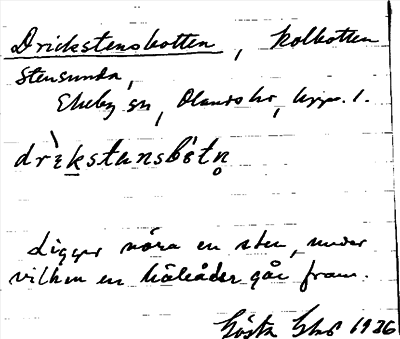 Drickstensbotten, kolbotten
Stensunda,
Ekeby sn, Olands hd, Uppl.
drikstansbòtn̥
Ligger nära en sten, under
vilken en källåder går fram.
Gösta 1936